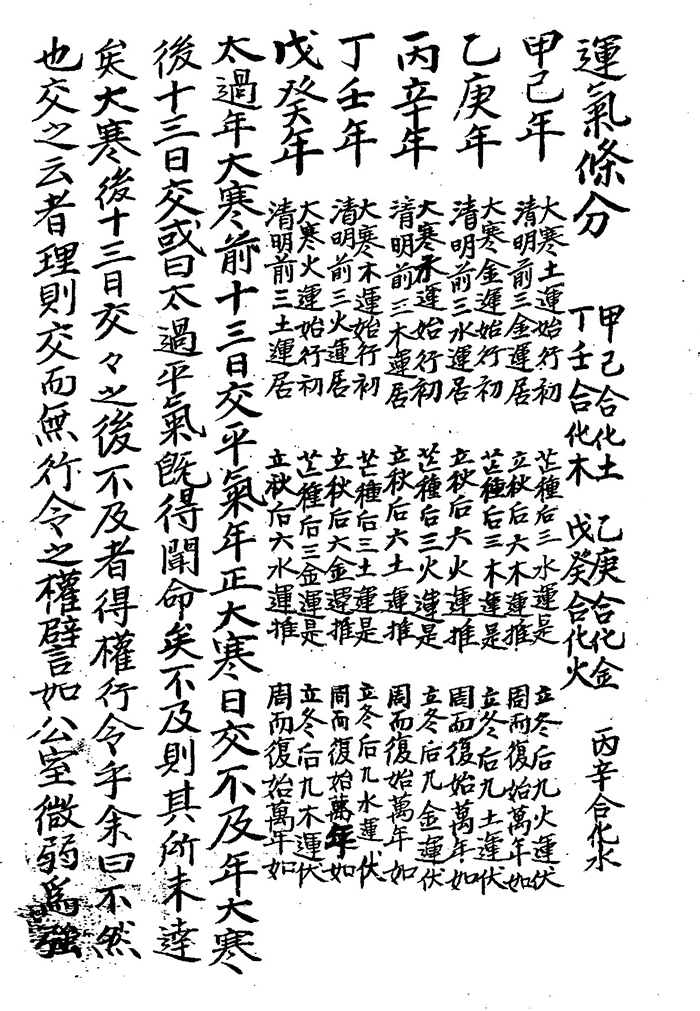 運氣條分
甲己合化土 乙庚合化金 丙辛合化水
丁壬合化木 戊癸合化火
甲己年
大寒土運始行初 芒種后三水運是 立冬后九火運伏
清明前三金運居 立秋后六木運推 周而復始萬年如
乙庚年
大寒金運始行初 芒種后三木運是 立冬后九土運伏
清明前三水運居 立秋后六火運推 周而復始萬年如
丙辛年
大寒水運始行初 芒種后三火運是 立冬后九金運伏
清明前三木運居 立秋后六土運推 周而復始萬年如
丁壬年
大寒木運始行初 芒種后三土運是 立冬后九水運伏
清明前三火運居 立秋后六金運推 周而復始萬年如
戊癸年
大寒火運始行初 芒種后三金運是 立冬后九木運伏
清明前三土運居 立秋后六水運推 周而復始萬年如
太過年大寒前十三日交平氣年正大寒日交不及年大寒
後十三日交或曰太過平氣既得聞命矣不及則其所未達
矣大寒後十三日交々之後不及者得權行令乎余曰不然
也交之云者理則交而無行令之權譬如公室微弱爲強